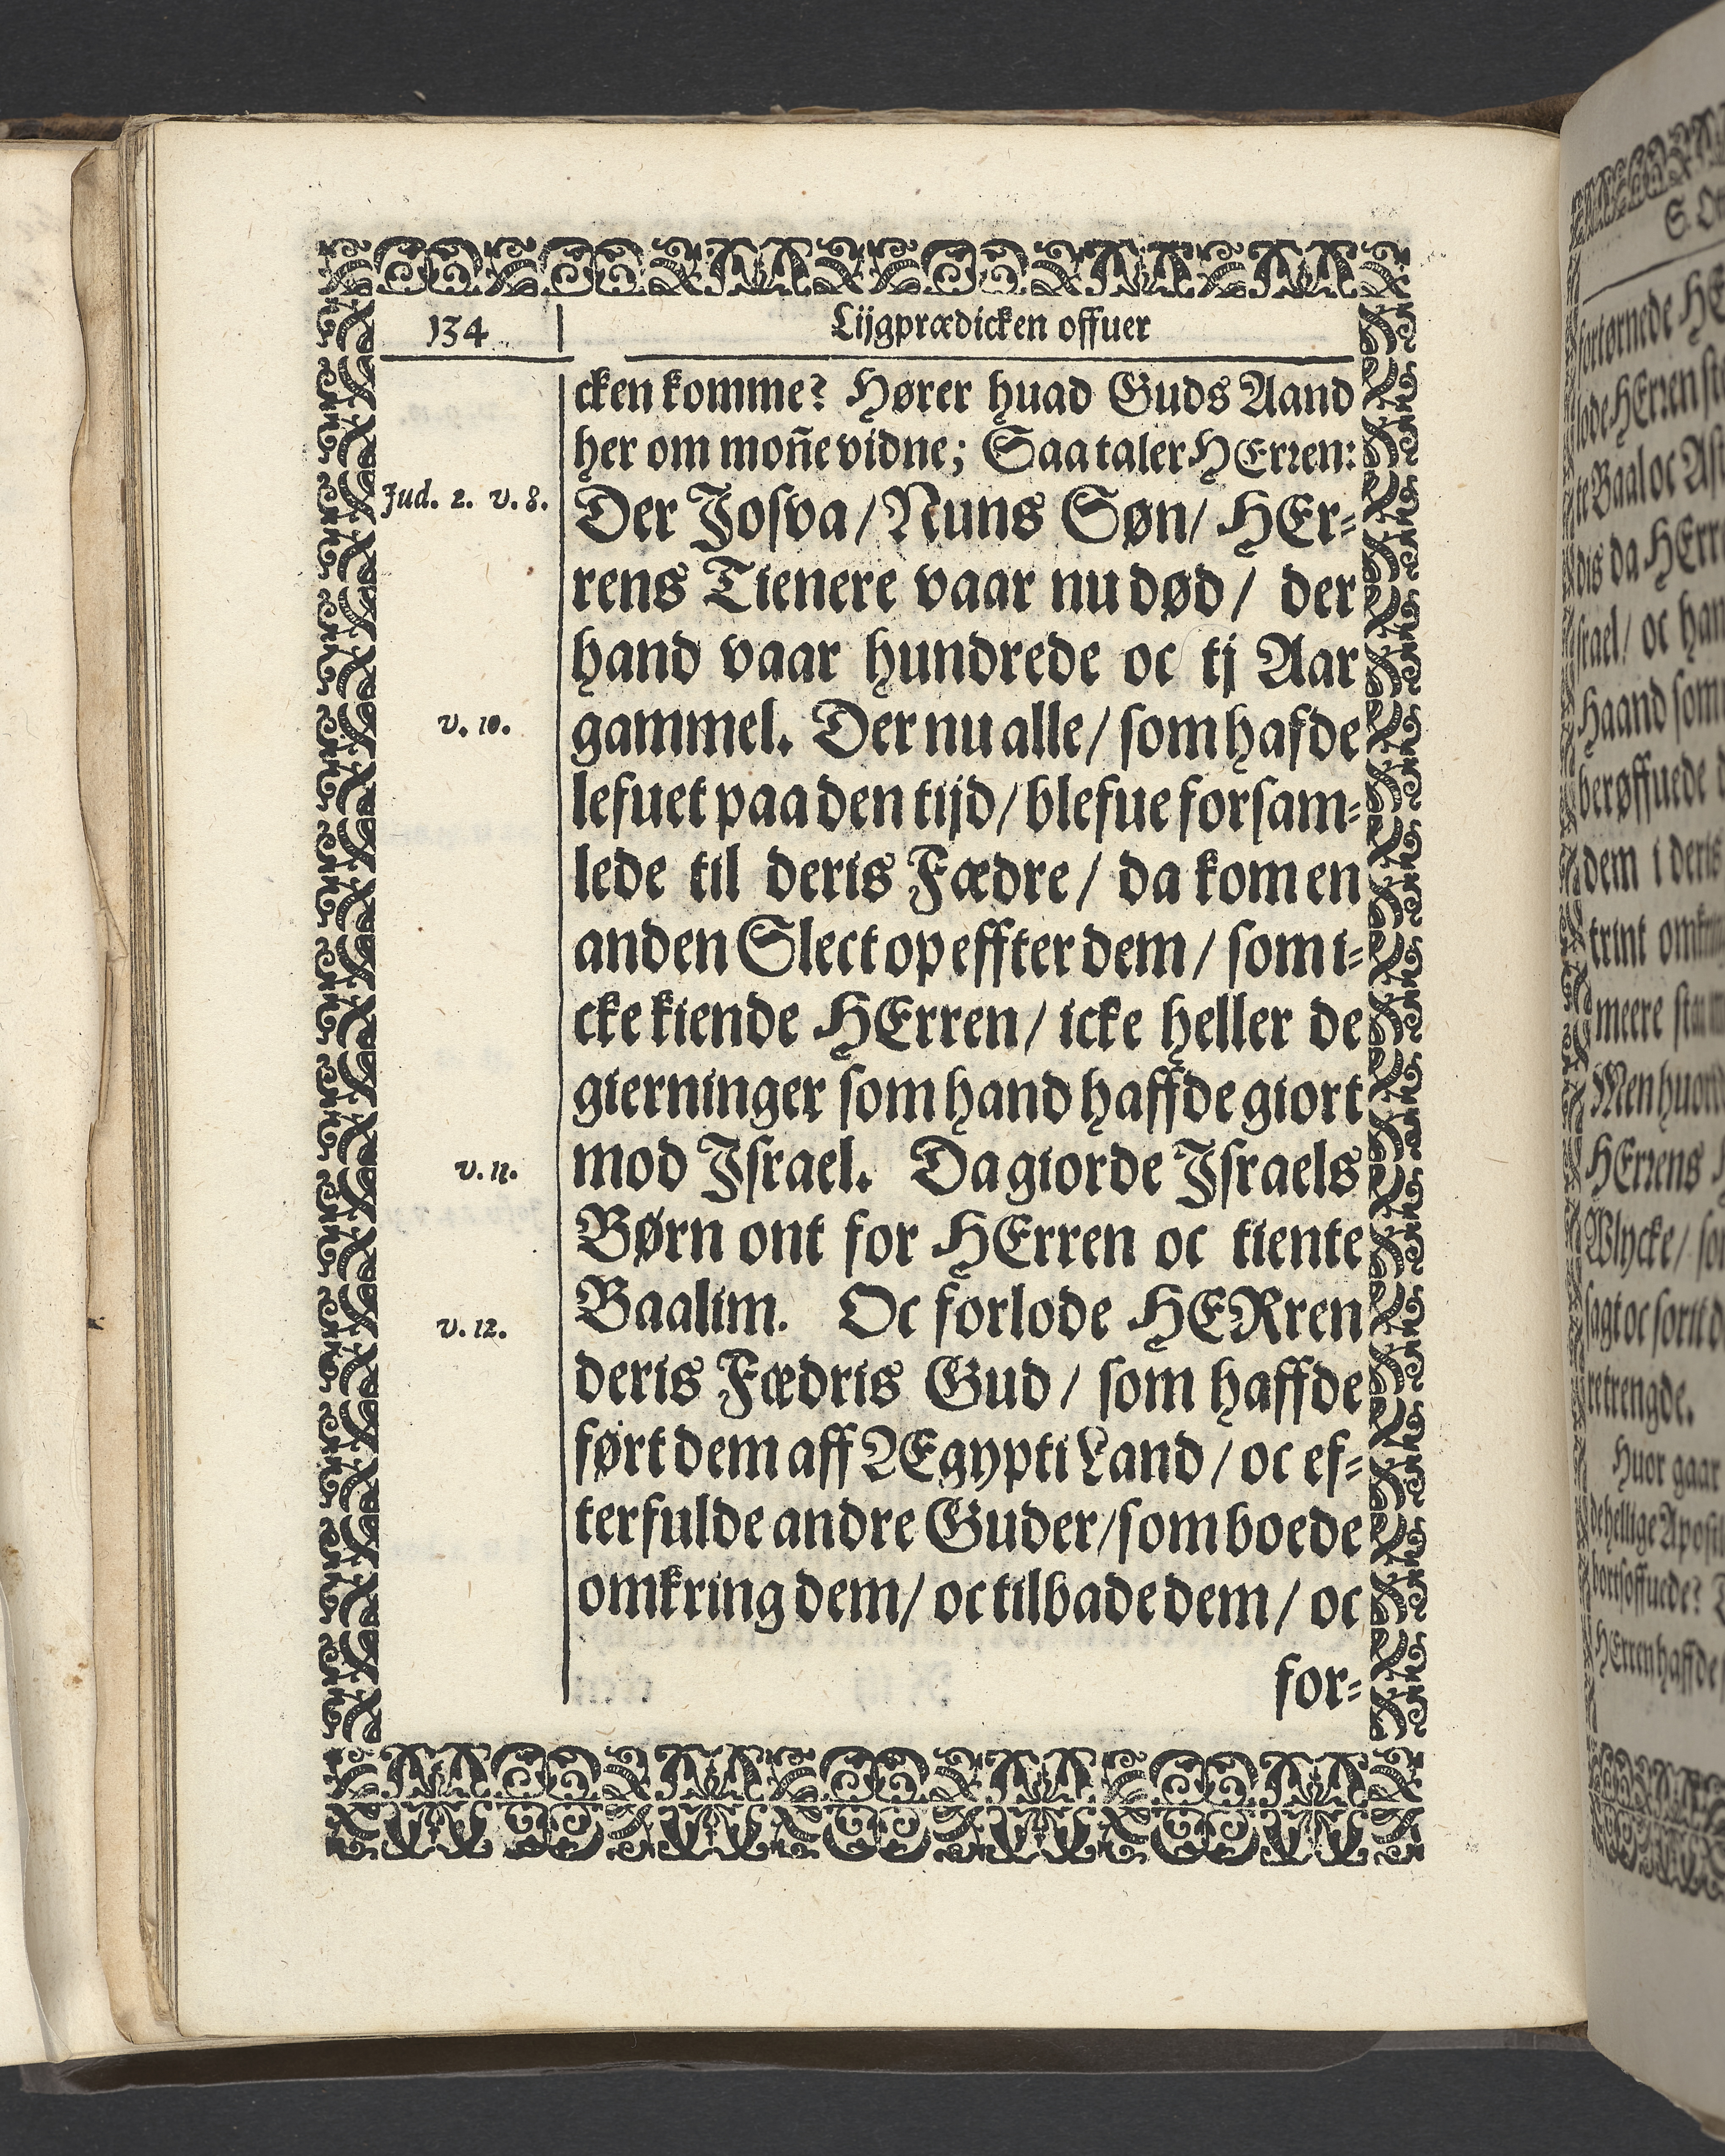 134
Lijgprædicken offuer
cken komme? Hører huad Guds Aand
her om mon̄e vidne; Saa taler HErren:
Jud. 2. v. 8.
Der Josva / Nuns Søn / HEr-
rens Tienere vaar nu død / der
hand vaar hundrede oc tj Aar
v. 10.
gammel. Der nu alle / som hafde
lefuet paa den tijd / blefue forsam-
lede til deris Fædre / da kom en
anden Slect op effter dem / som i-
cke kiende HErren / icke heller de
gierninger som hand haffde giort
v. 11.
mod Jsrael. Da giorde Jsraels
Børn ont for HErren oc tiente
v. 12.
Baalim. Oc forlode HERren
deris Fædris Gud / som haffde
ført dem aff ÆEgypti Land / oc ef-
terfulde andre Guder / som boede
omkring dem / oc tilbade dem / oc
for-
fortørnede HE
lode HErren
te Baal oc
dis da HErr
srael / oc han
Haand som
berøffuede
dem i deris
trint
meere
Men
HErrens
Wlycke /
sagt oc
retrengde.
Huor gaar
de hellige
HErren haffde